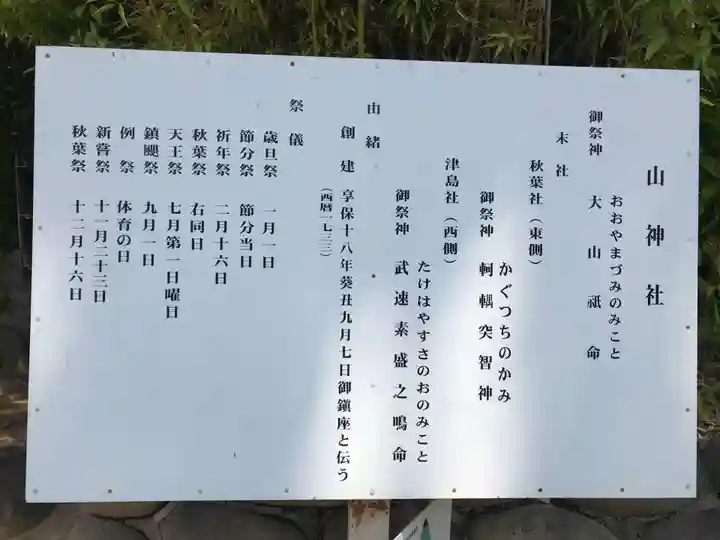 山神社
御祭神 大山祇命
おおやまづみのみこと
末社
秋葉社（東側）
御祭神 軻遇突智神
かぐつちのかみ
津島社（西側）
御祭神 武速素盛之鳴命
たけはやすさのおのみこと
由緒
創建 享保十八年葵丑九月七日御鎮座と伝う
（西暦一七三三）
祭儀
歳旦祭 一月一日
節分祭 節分当日
祈年祭 二月十六日
秋葉祭 右同日
天王祭 七月第一日曜日
鎮颶祭 九月一日
例祭 体育の日
新嘗祭 十一月二十三日
秋葉祭 十二月十六日